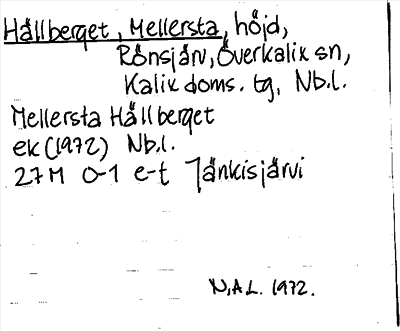 Hållberget, Mellersta, höjd,
Rönsjärv, Överkalix sn,
Kalix doms. tg, Nb.l.
Mellersta Hållberget
ek (1972) Nb.l.
27M 0-1 e-t Jänkisjärvi
N.A.L. 1972.